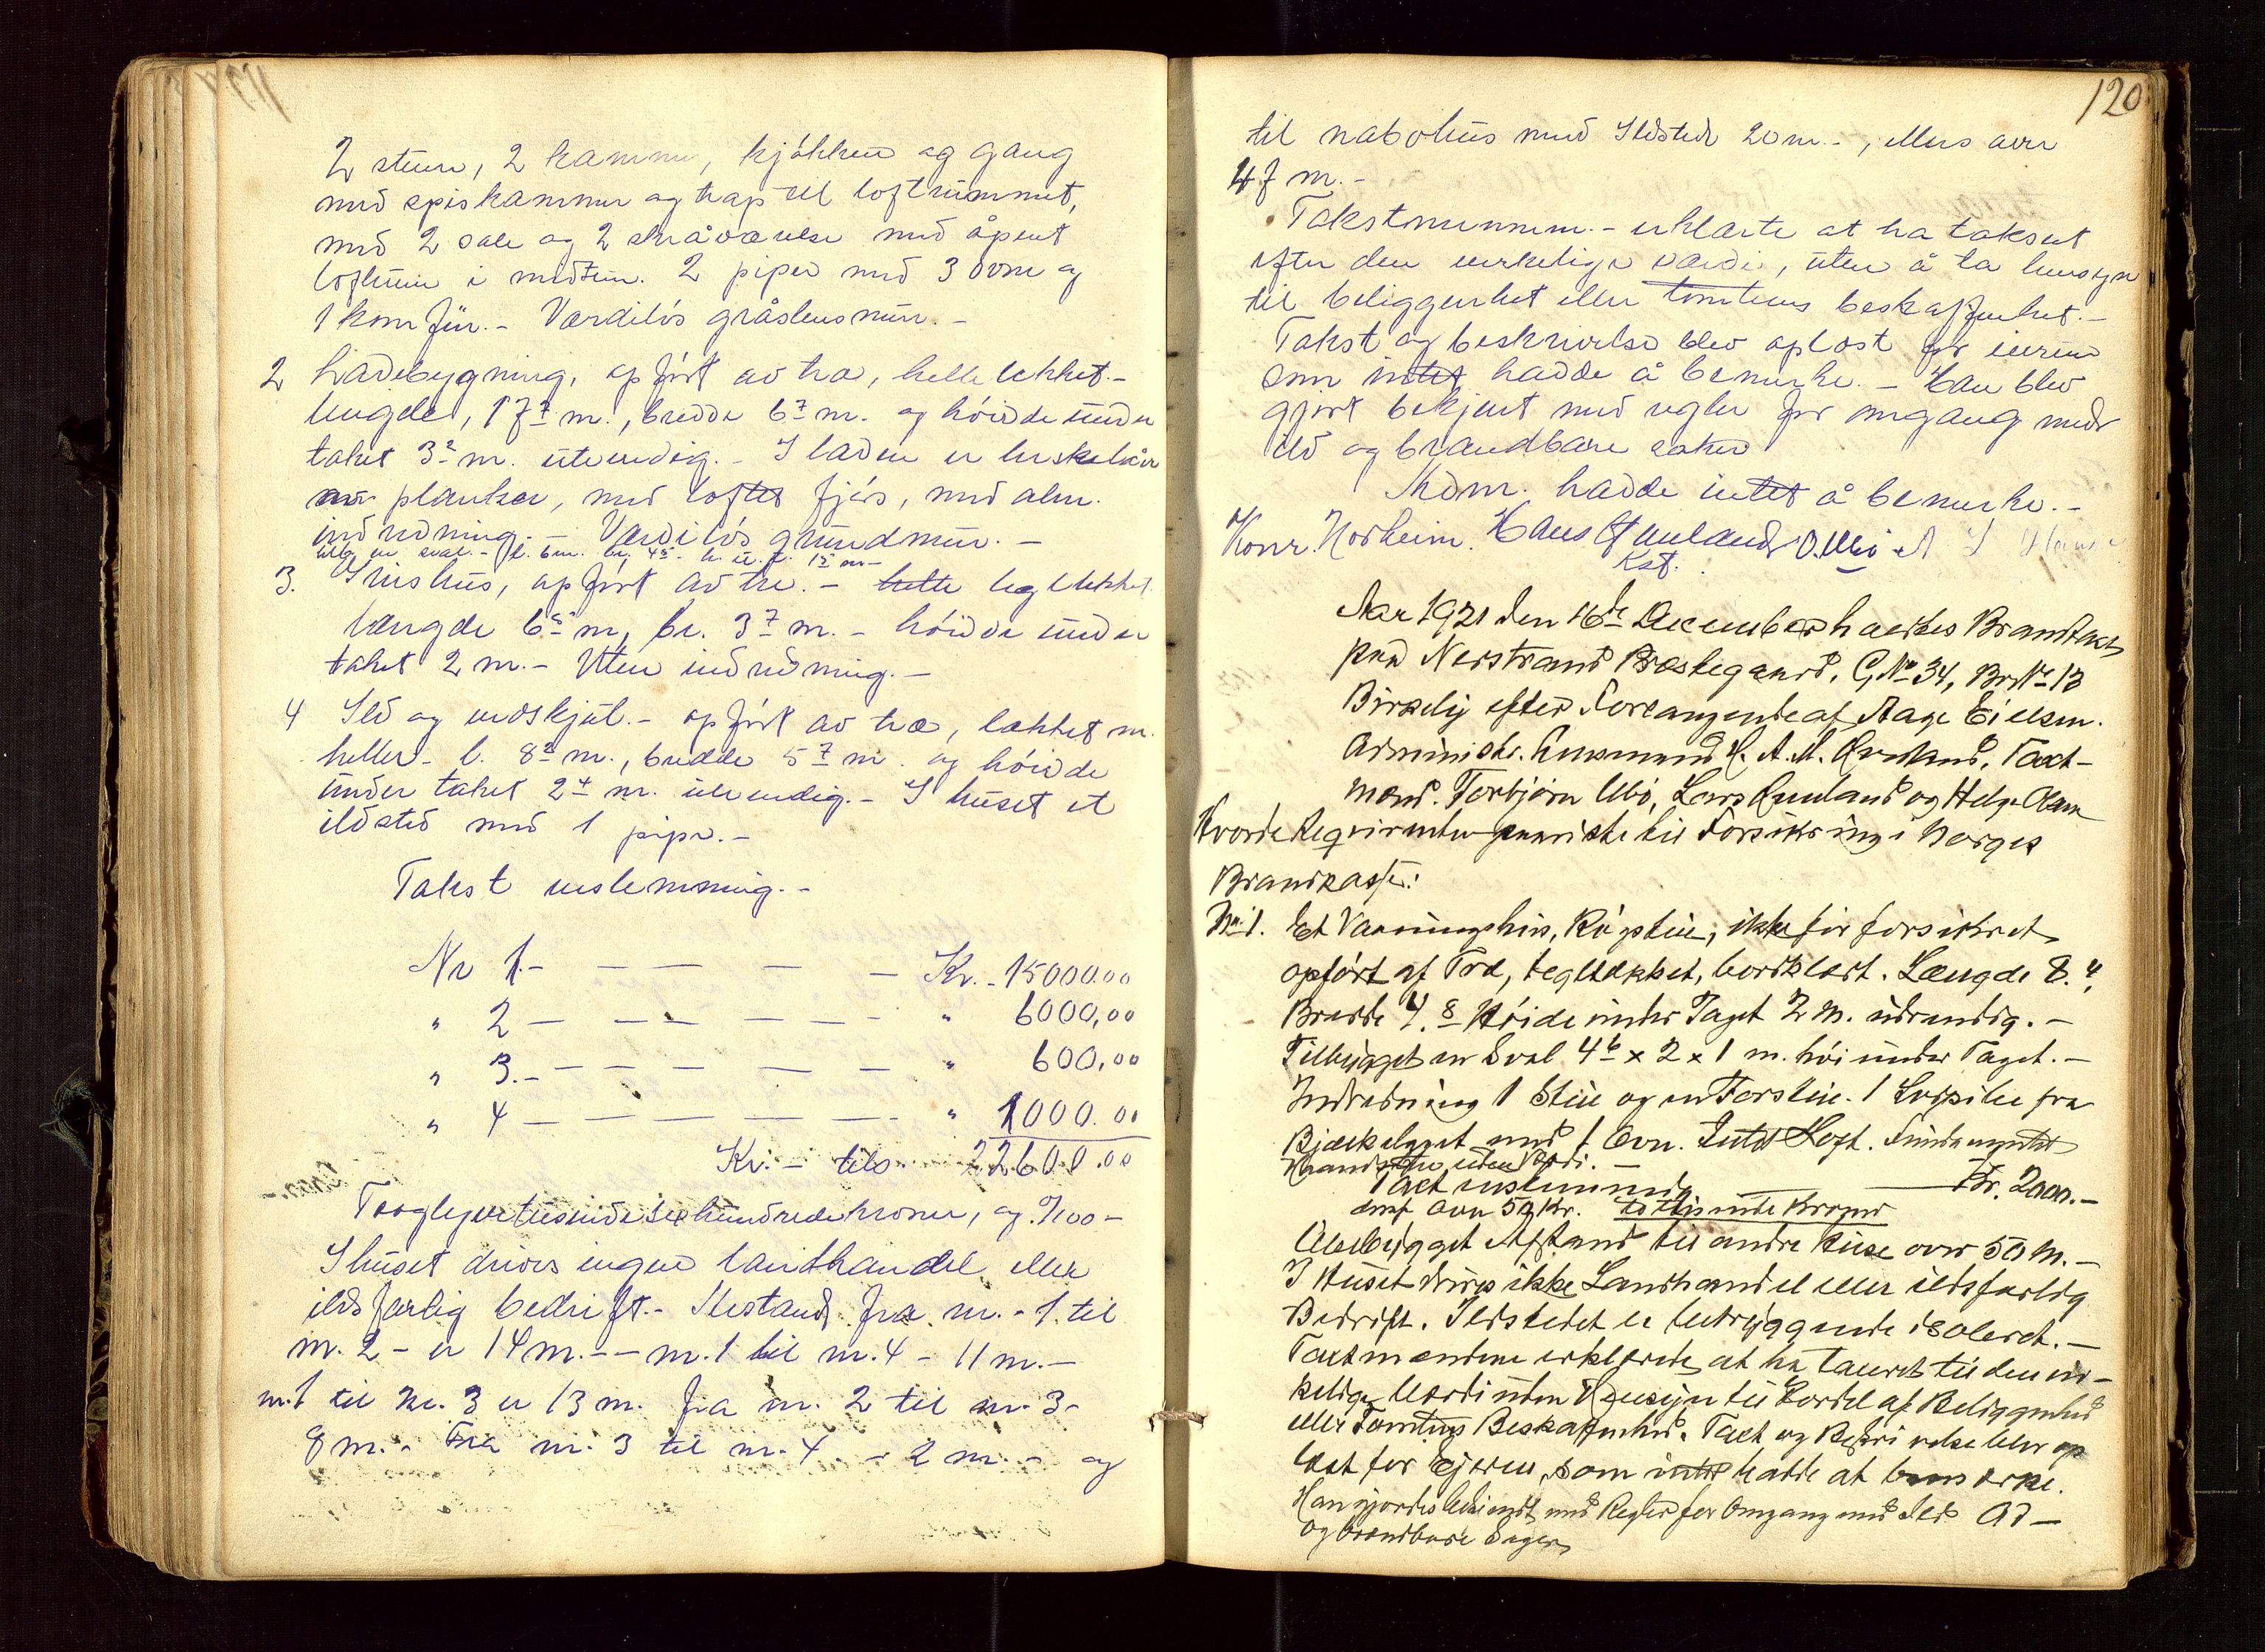 2 stuer, 2 kammer, kjøkken og gang
med spiskammer og trap til loftrummet,
med 2 sale og 2 skråværelse med åpent
loftrum i midten. 2 piper med 3 ovne og
1 komfür.- Værdiløs gråstensmur.-
2 Ladebygning, opført av træ, helletekket.-
lengde, 17⁷ m., bredde 6⁷ m. og høide under
taket 3² m. utvendig.- I laden er
planker, med loftet fjøs, med alm.
indredning.- Værdiløs grundmur.-
tilb. en sval.- l. 6m. br. 4⁵ h. u. t. 1⁵ m.-
3. Smshus, opført av træ.- teglt​ekket.
længde 6⁵ m, br. 3⁷ m.- høide under
taket 2 m.- Uten indredning.-
4 Ild og vedskjul.- opført av træ, tækket m.
heller.- l. 8² m., bredde 5⁷ m. og høide
under taket 2⁴ m. utvendig.- I huset et
ildsted med 1 pipe.-
Takst uslemming.-
Nr 1.- — — — — Kr.- 15000.00
" 2 — — — — — " 6000,00
" 3.- — — — — — " 600,00
" 4 — — — — — " 1000.00
Kr.- tils. 22600.00
Toogtyvetusindesekshundrede kroner, og 0/100-
I huset drives ingen landhandel eller
ildsfarlig bedrift.- Avstand fra nr.- 1 til
nr. 2 - er 14 m.-- nr. 1 til nr. 4 - 11 m.-
nr. 1 til nr. 3 er 13 m. fra nr. 2 til nr. 3-
9 m.- Fra nr. 3 til nr. 4.- 2 m.- og
120
til nabohus med Ildsted 20 m.-, ellers over
47 m.-
Takstmennene.- erklærte at ha taksert
efter den virkelige værdi, uten å ta hensyn
til beliggenhet eller tomtens beskaffenhet.-
Takst og beskrivelse blev oplæst for eieren
som intet hadde å bemerke.- Han blev
gjort bekjent med regler for omgang med
ild og brandbare saker
hadde intet å bemerke.-
Konr. Norheim. Hans Kst. O. Ubø
Aar 1921 den 16de December holdtes Brandtakst
paa Nerstrand Præstegaard, G.No 34, Br.No 13
efter Forlangende af Aage Eielsen.
Administr. Lensmand H. A. M. Taxt-
mænd. Torbjørn Ubø, Lars og Helge
Hvorde Reqvirenten Forsikring i Norges
Brandkasse:
No 1. Et Vaaningshus, Røgstue, ikke før forsikret
opført af Træ, tegltækket, bordklædt. Længde 8.⁴
Bredde 4.⁸ Høide under Taget 2 m. udvendig.-
Tilbygget en Sval 4⁶ x 2 x 1 m. høi under Taget.-
Indredning 1 Stue og en Forstue. 1 fra
med 1 Ovn. Intet Loft. Fundamentet
uden Værdi.-
Taxt — Kr. 2000.-
deraf Ovn 50 Kr. to tusinde Kroner
Afstand til andre Huse over 50 m.-
I Huset drives ikke Landhandel eller ildsfarlig
Bedrift. Ildstedet er betryggende isoleret.-
Taxtmændene erklærede at ha taxeret til den vir-
kelige Værdi uden Hensyn til Fordel af Beliggenhed
eller Tomtens Beskaffenhed. Taxt og Beskrivelse blev op
læst for Ejeren, som intet hadde at bemærke.
Han gjordes bekjendt med Regler for Omgang med Ild Ad-
og brandbare Sager